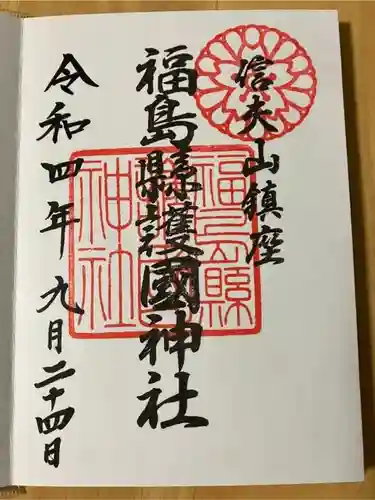 信夫山鎮座
福島縣護國神社
令和四年九月二十四日
福島縣護國神社